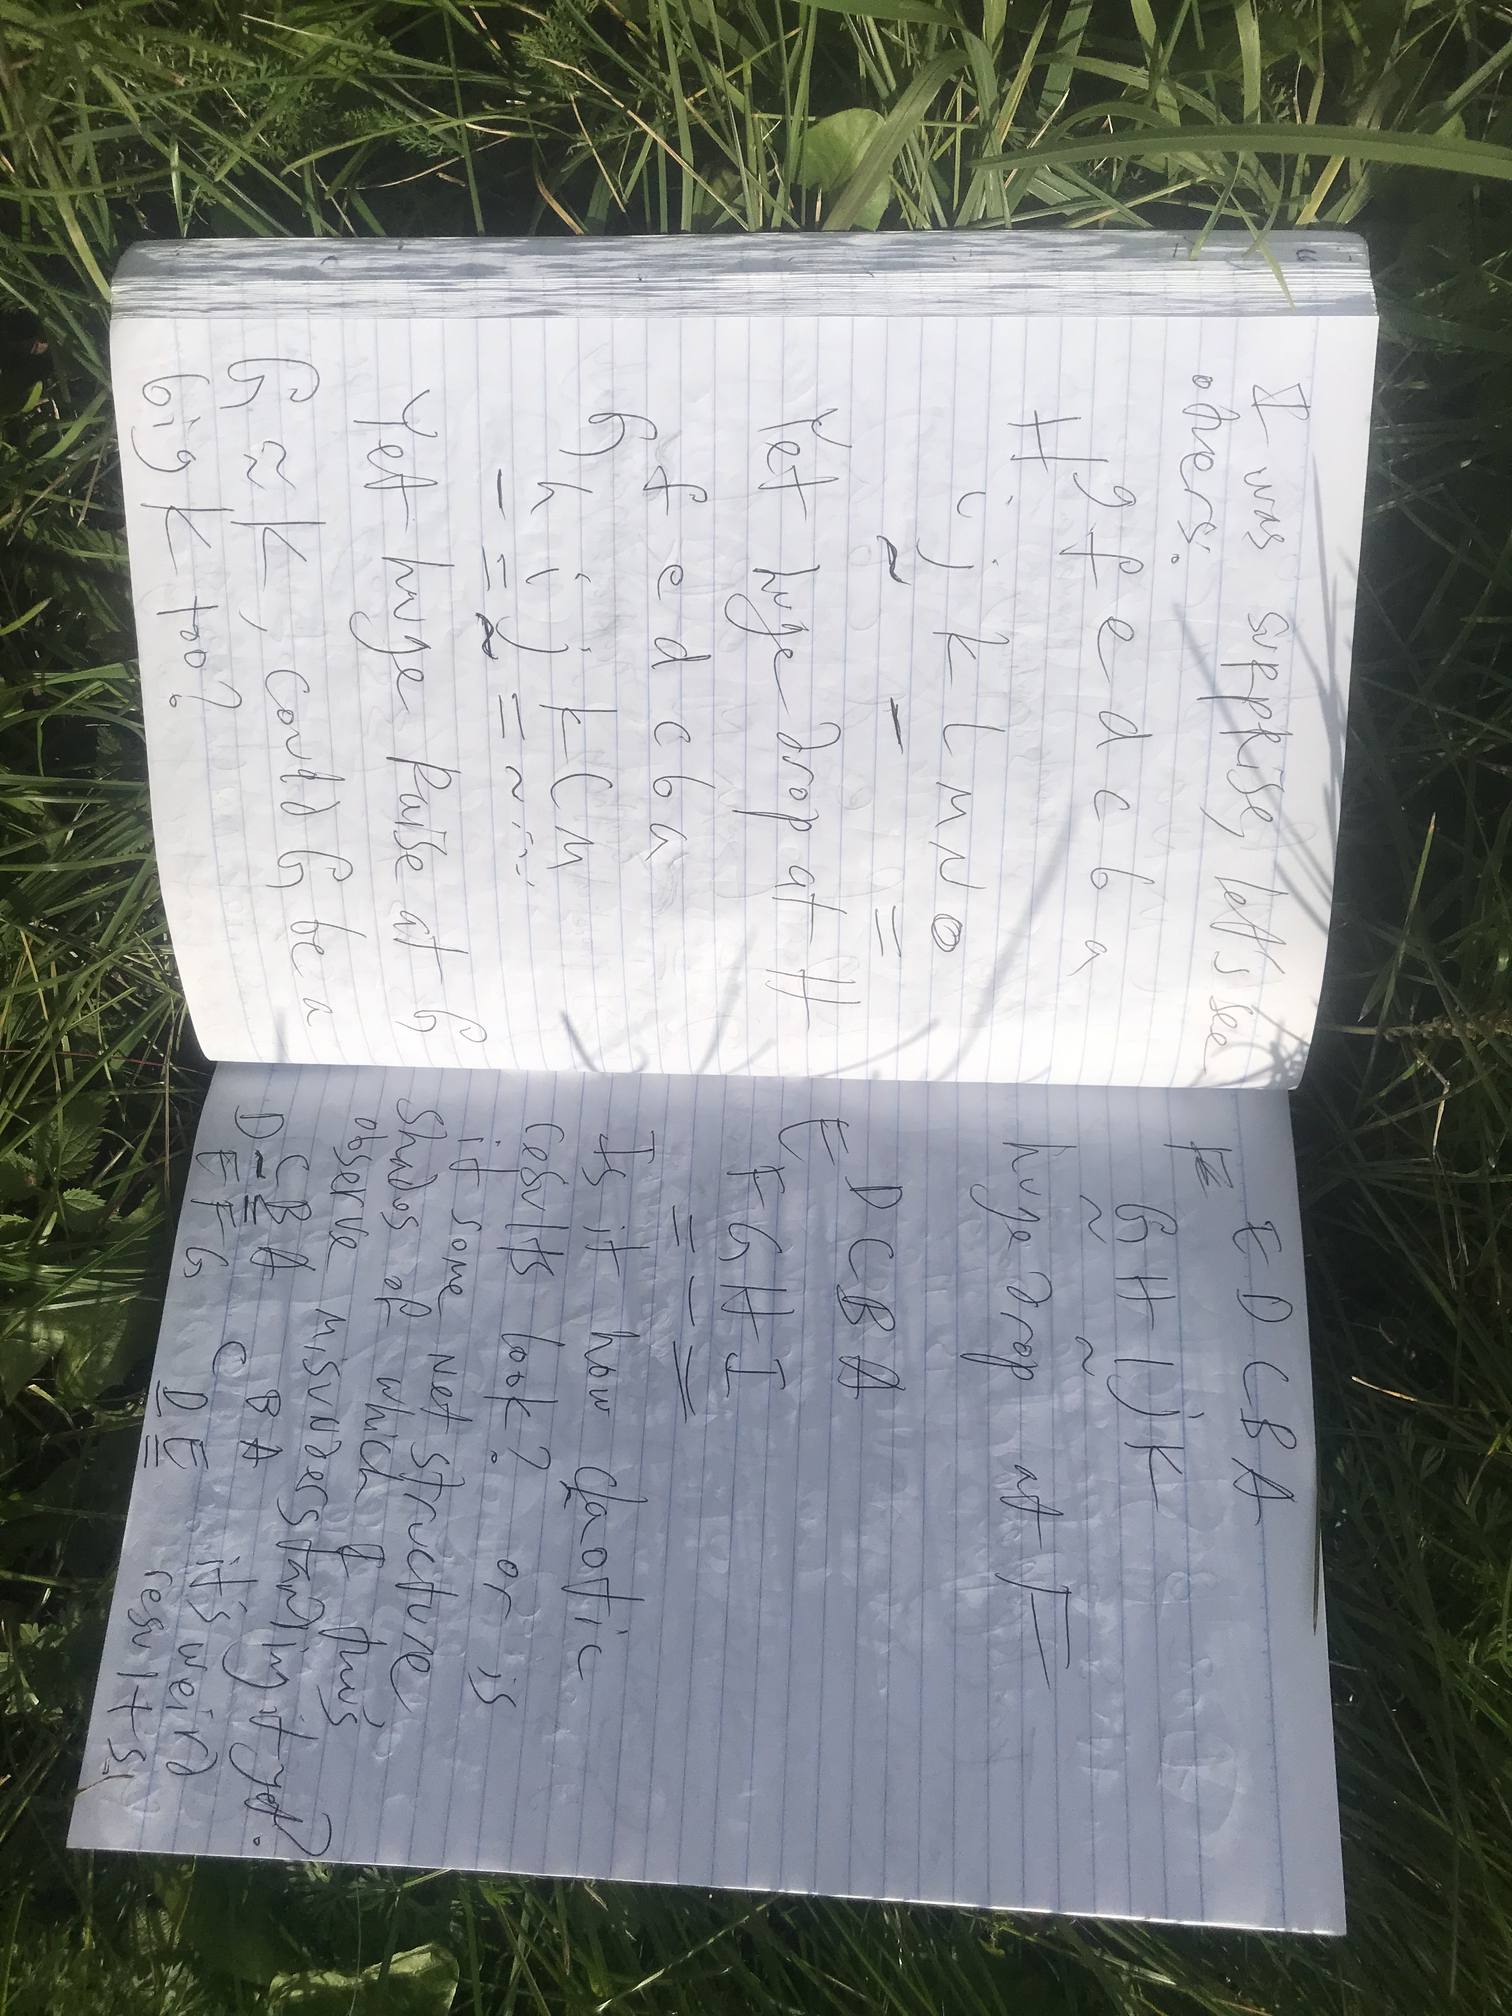 I was supprise, let's see
others.
H g f e d c b a
i j k l m n o
~ - =
Yet huge drop at H
G f e d c b a
h i j k l m
- = ~ = ~
Yet huge pulse at G
G ≈ K, could G be a
big K too?
F E D C B A
G H I J K
~ ~
huge drop at F
E D C B A
F G H I
= - =
Is it how chaotic
results look? or is
it some net structure
shados of which I thus
observe misunderstanding it yet?
D C B A C B A it's weird
E F G D E results!